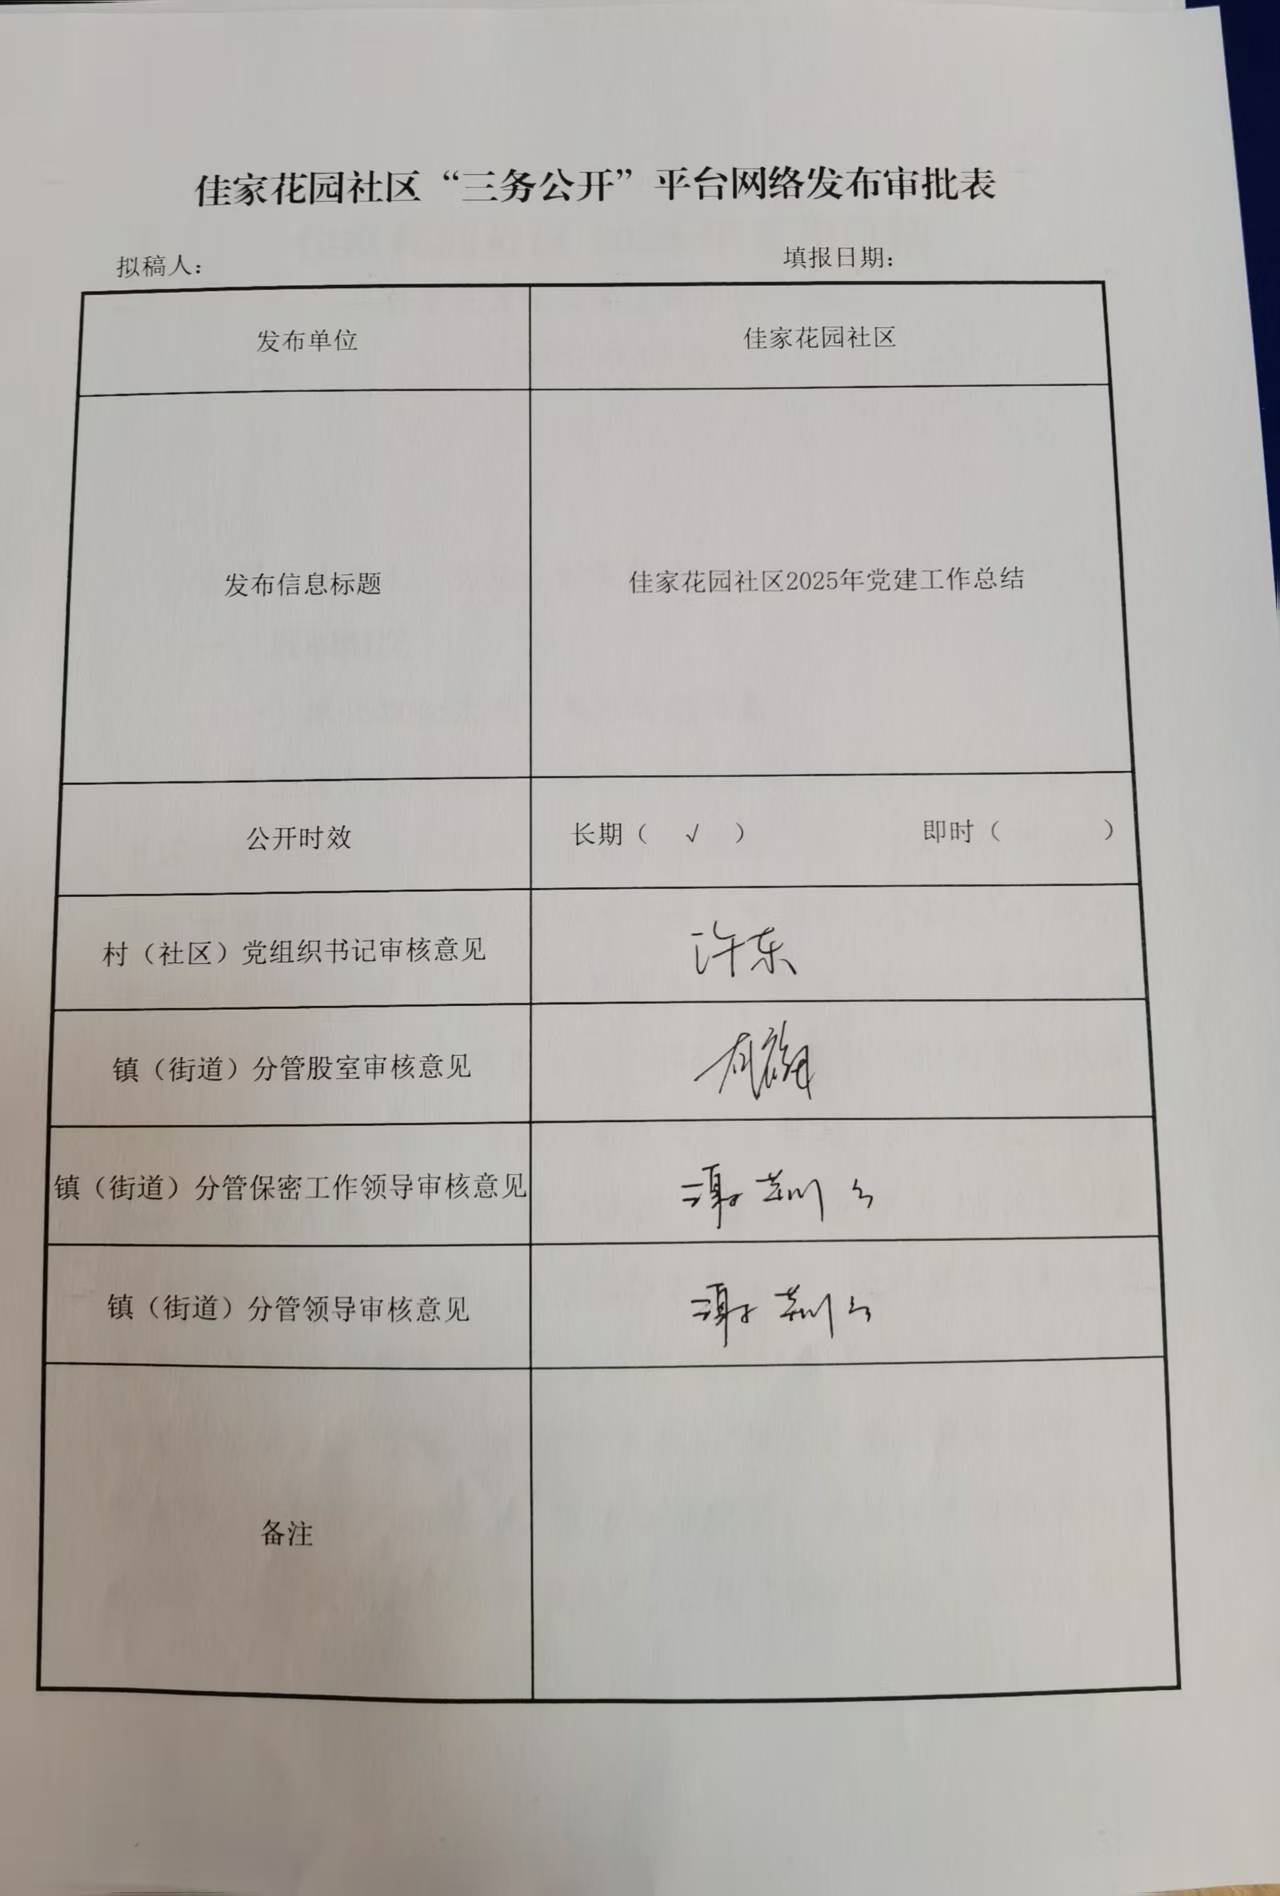 佳家花园社区“三务公开”平台网络发布审批表
拟稿人： 填报日期：
发布单位 佳家花园社区
发布信息标题 佳家花园社区2025年党建工作总结
公开时效 长期（ √ ） 即时（ ）
村（社区）党组织书记审核意见 许东
镇（街道）分管股室审核意见
镇（街道）分管保密工作领导审核意见 谢
镇（街道）分管领导审核意见 谢
备注